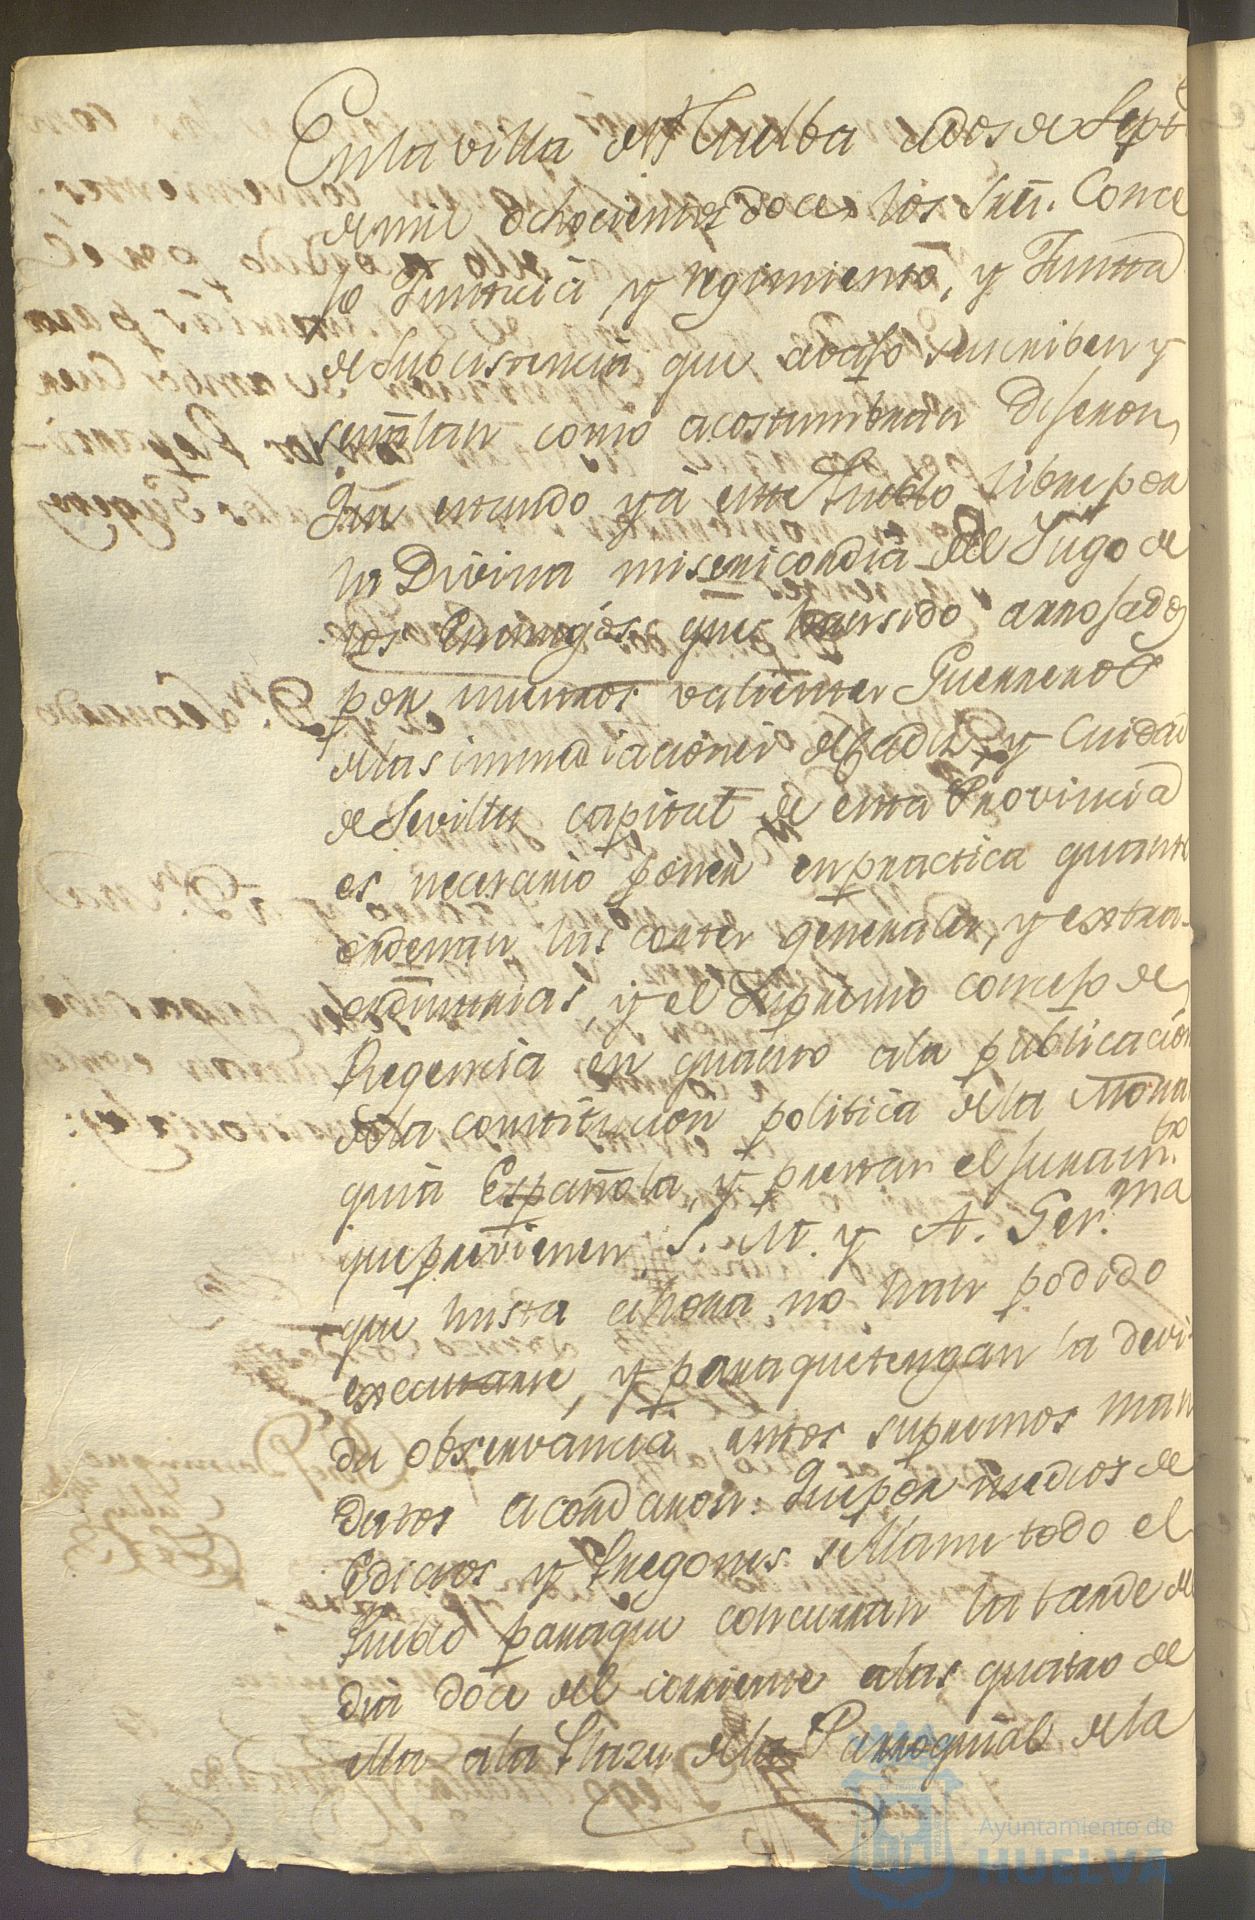 En la villa de Huelba a dos de Septe
de mil ochocientos doce los Sres. Conce
jo Justicia y regimiento, y Junta
de Subcistencia que abajo suscriben y
señalan como acostumbran Dijeron
Que estando ya este Pueblo libre por
la Divina misericordia del Yugo de
los Enemigos que han sido arrojados
por nuestros valientes Guerreros
de las immediaciones de Cadiz y Ciudad
de Sevilla capital de esta Provincia
es necesario poner en practica quanto
ordenan las cortes generales, y extra-
ordinarias, y el Supremo consejo de
Regencia en quanto a la publicacion
de la constitucion politica de la Monar
quia Española, y prestar el juram.to
que previenen S. M. y A. Ser.ma
que hasta ahora no han podido
executarse, y para que tengan la devi
da observancia estos supremos man
datos acordaron: Que por medios de
Edictos y Pregones se llame todo el
Pueblo para que concurran la tarde del
dia doce del corriente a las quatro de
ella a la Plaza de la Parroquial de la
Ayuntamiento de
HUELVA